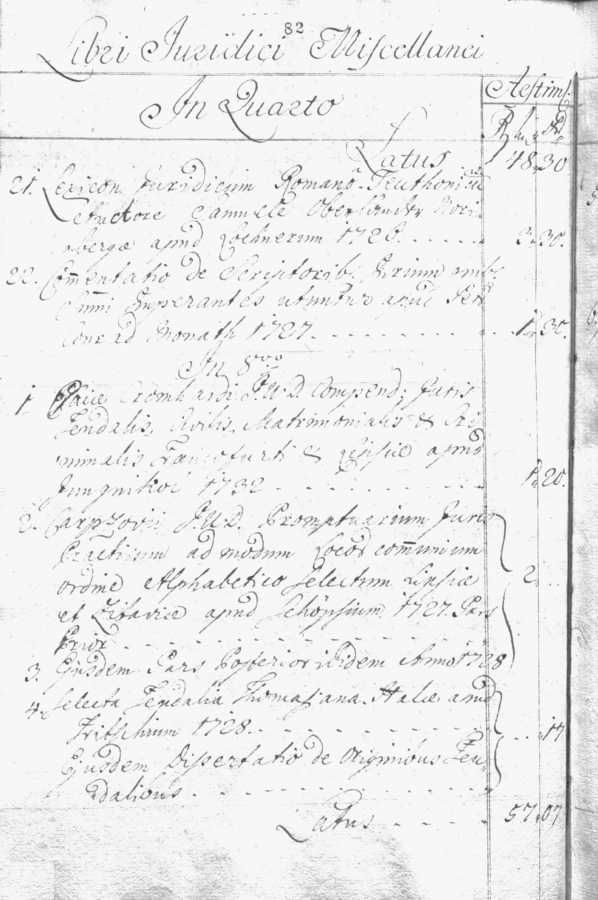 82
Libri Juridici Miscellanei
Aestim.
In Quarto
Latus 48. 30
21. Lexicon Juridicum Romano-Teuthonicum
Auctore Samuele Oberländer Nori-
bergæ apud Lochnerum 1726. 3. 30.
22. Com̄entatio de Scriptorib. Jurium
Sum̄i Imperantes utuntur apud
Conrad Monath 1727. 1. 30.
In 8vo
1. Cromhardi J.U.D. Compend: Juris
Feudalis, Civilis, Matrimonialis & Cri-
minalis Francofurti & Lipsiæ apud
1732 1. 20.
2. Carpzovii J.U.D. Promptuarium Juris
Practicum ad modum Locor̄ com̄unium
ordine Alphabetico Selectum Lipsiæ 2.
et Zitaviæ apud Schöpsium 1727. Pars
Prior
3. Ejusdem Pars Posterior ibidem Anno 1728
4. Selecta Feudalia Thomasiana. Halæ apud
Fritschium 1728. 17
Ejusdem Dissertatio de Originibus Feu-
dalibus
Latus 57. 07.